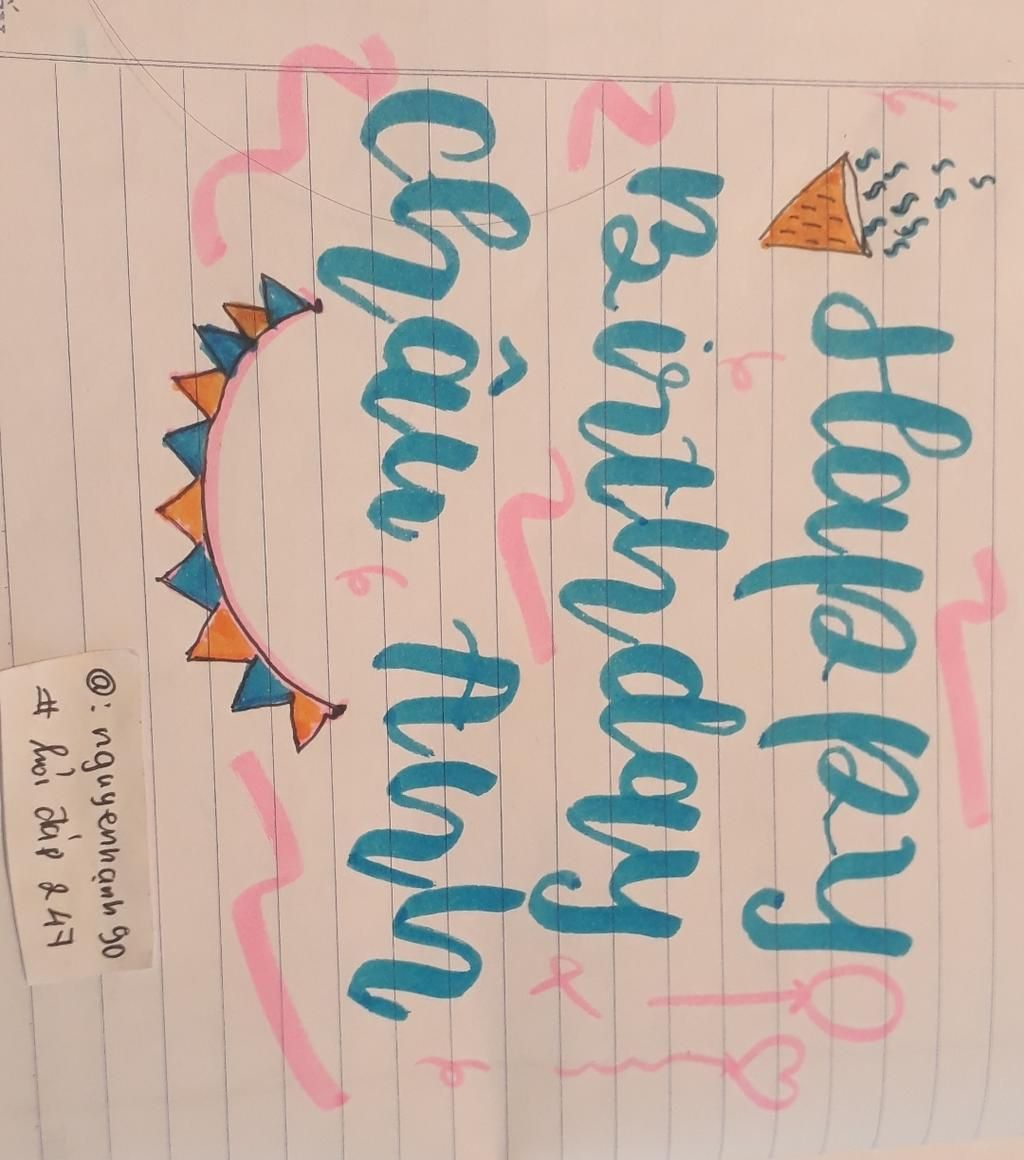 Happy
Birthday
Châu Anh
@: nguyenhạnh 90
# hỏi đáp 247